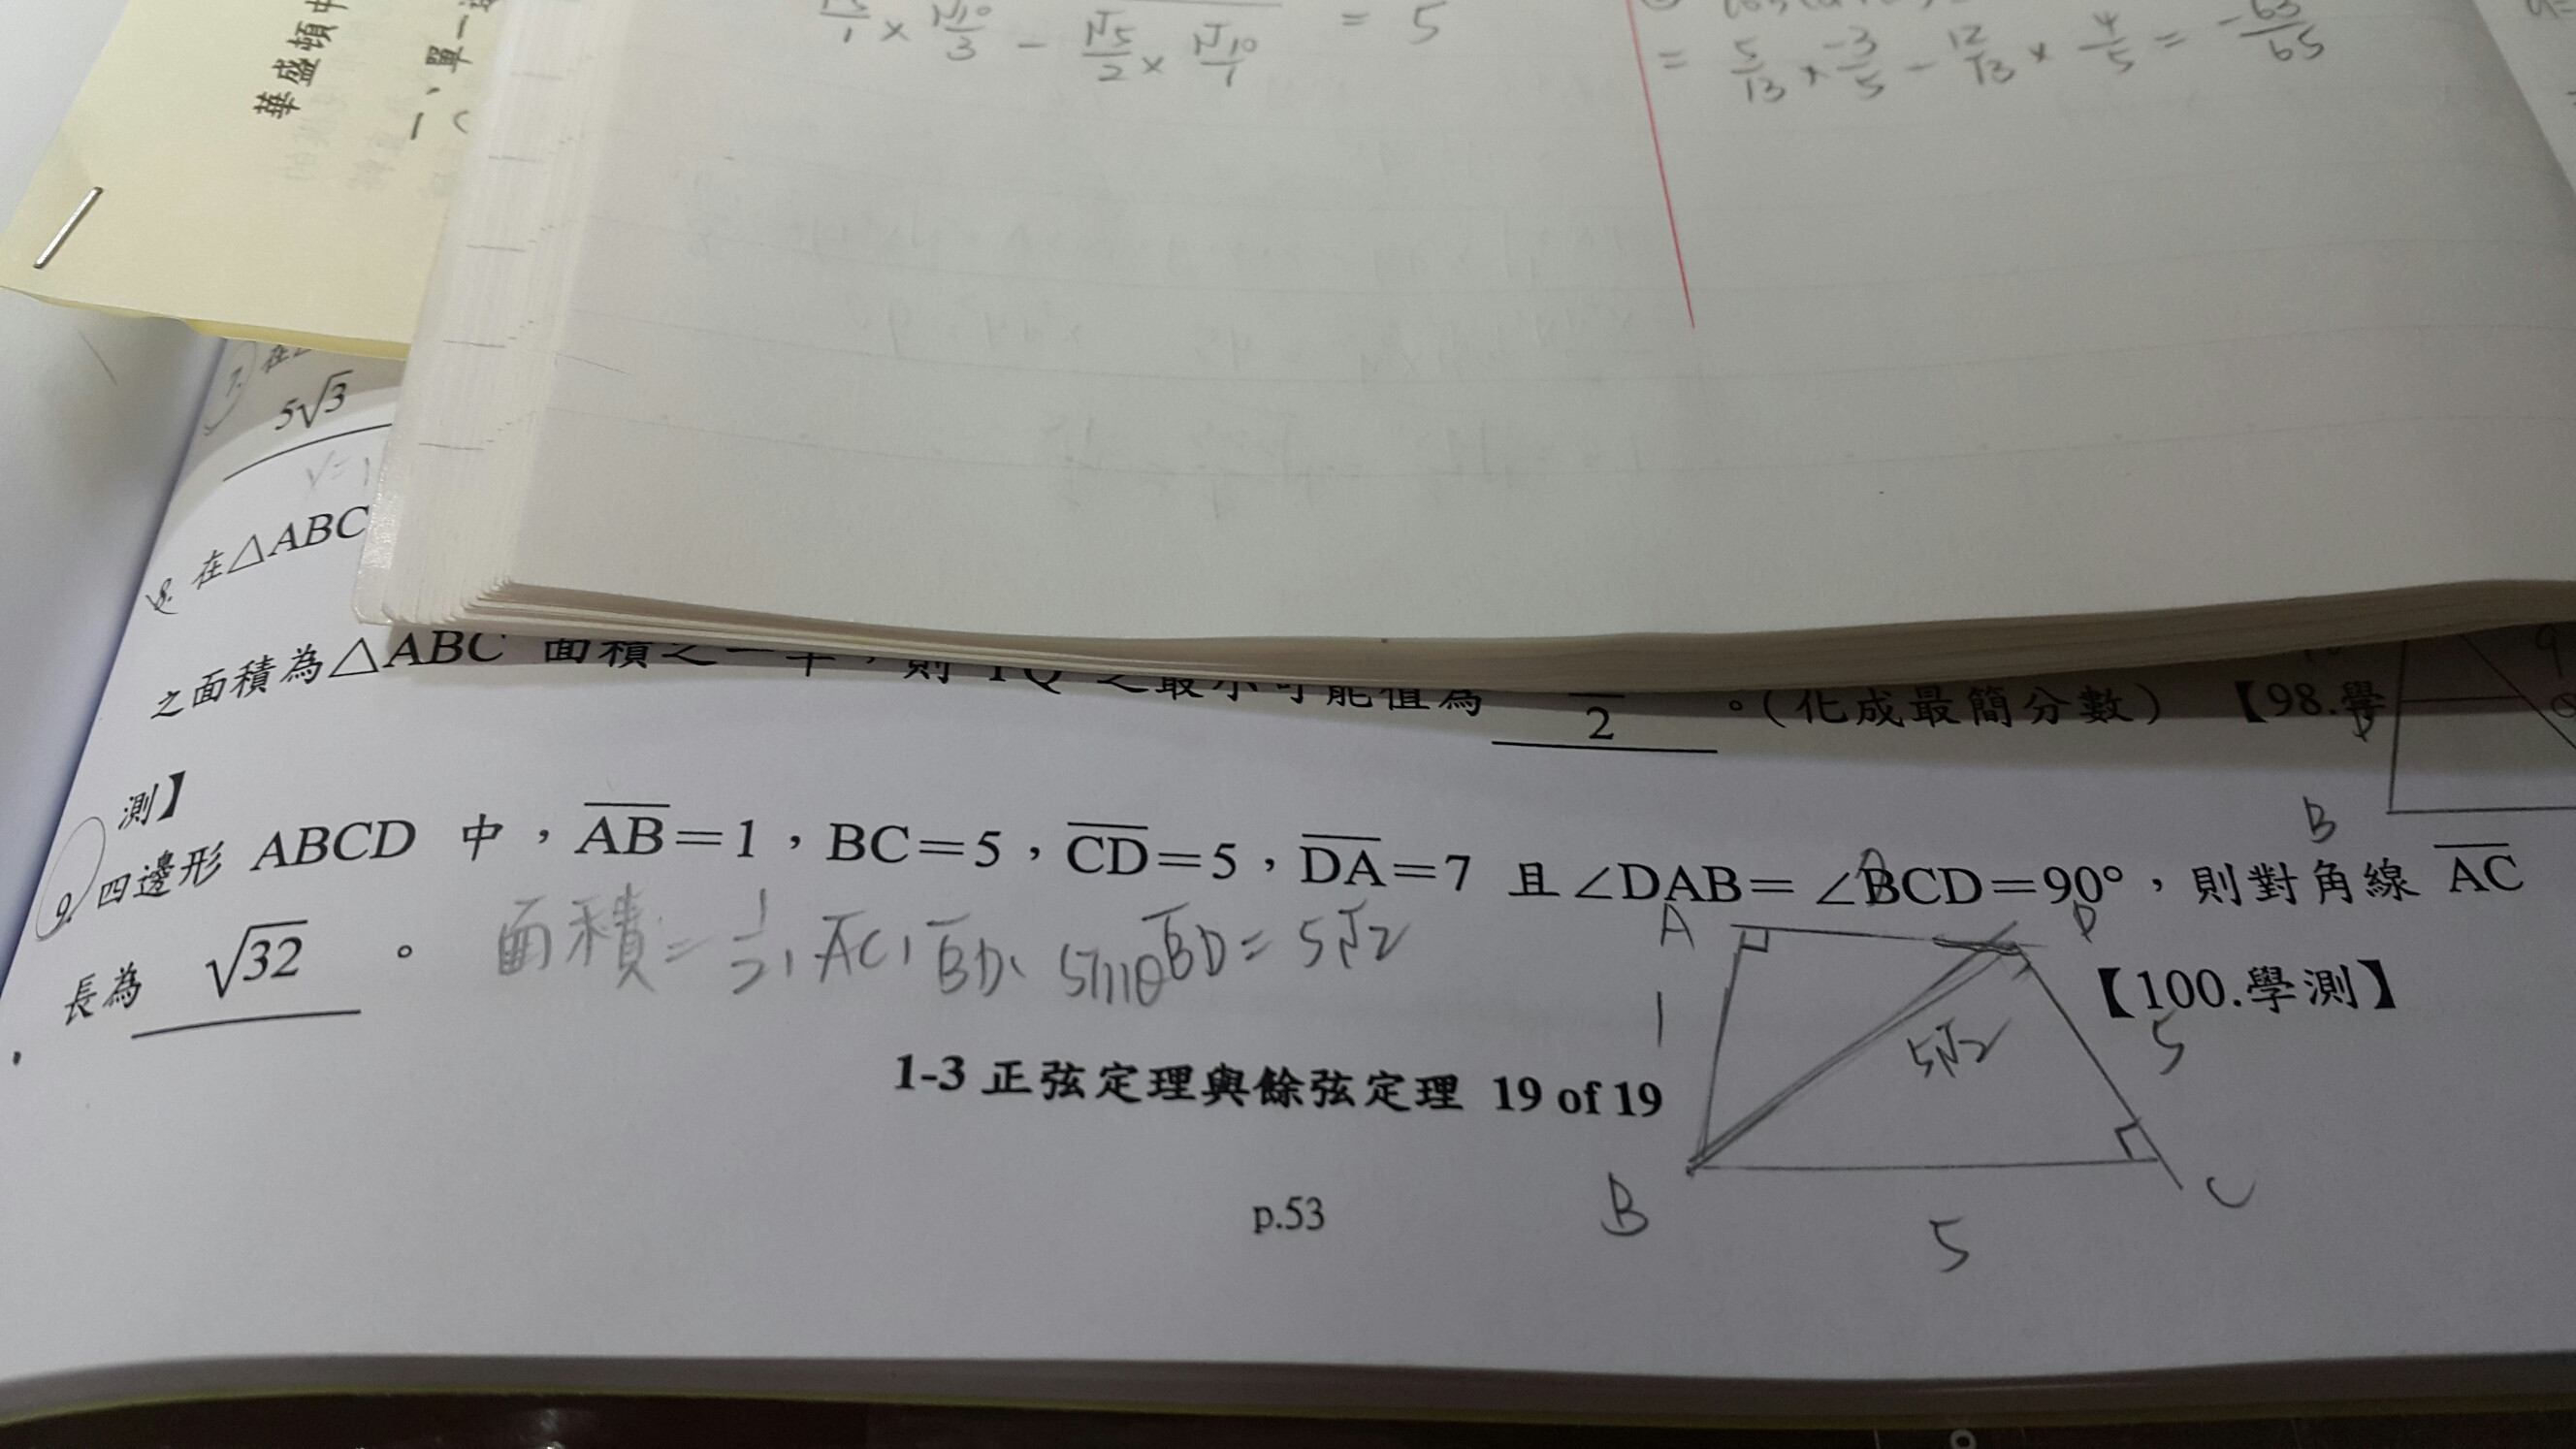 華盛頓中
、單一選
1 (
/1 × √10/3 - √5/2 × √10/1 = 5
= 5/13 × -3/5 - 12/13 × 4/5 = -63/65
7. 在
5√3
8. 在△ABC
之面積為△ABC 面積之一半,則 PQ 之最小可能值為 2 。(化成最簡分數) 【98.學
測】
B
9. 四邊形 ABCD 中,AB=1,BC=5,CD=5,DA=7 且∠DAB=∠BCD=90°,則對角線 AC
長為 √32 。
面積=1/2, AC, BD, sinθ BD=5√2
A D
【100.學測】
1 5√2 5
1-3 正弦定理與餘弦定理 19 of 19
B C
5
p.53